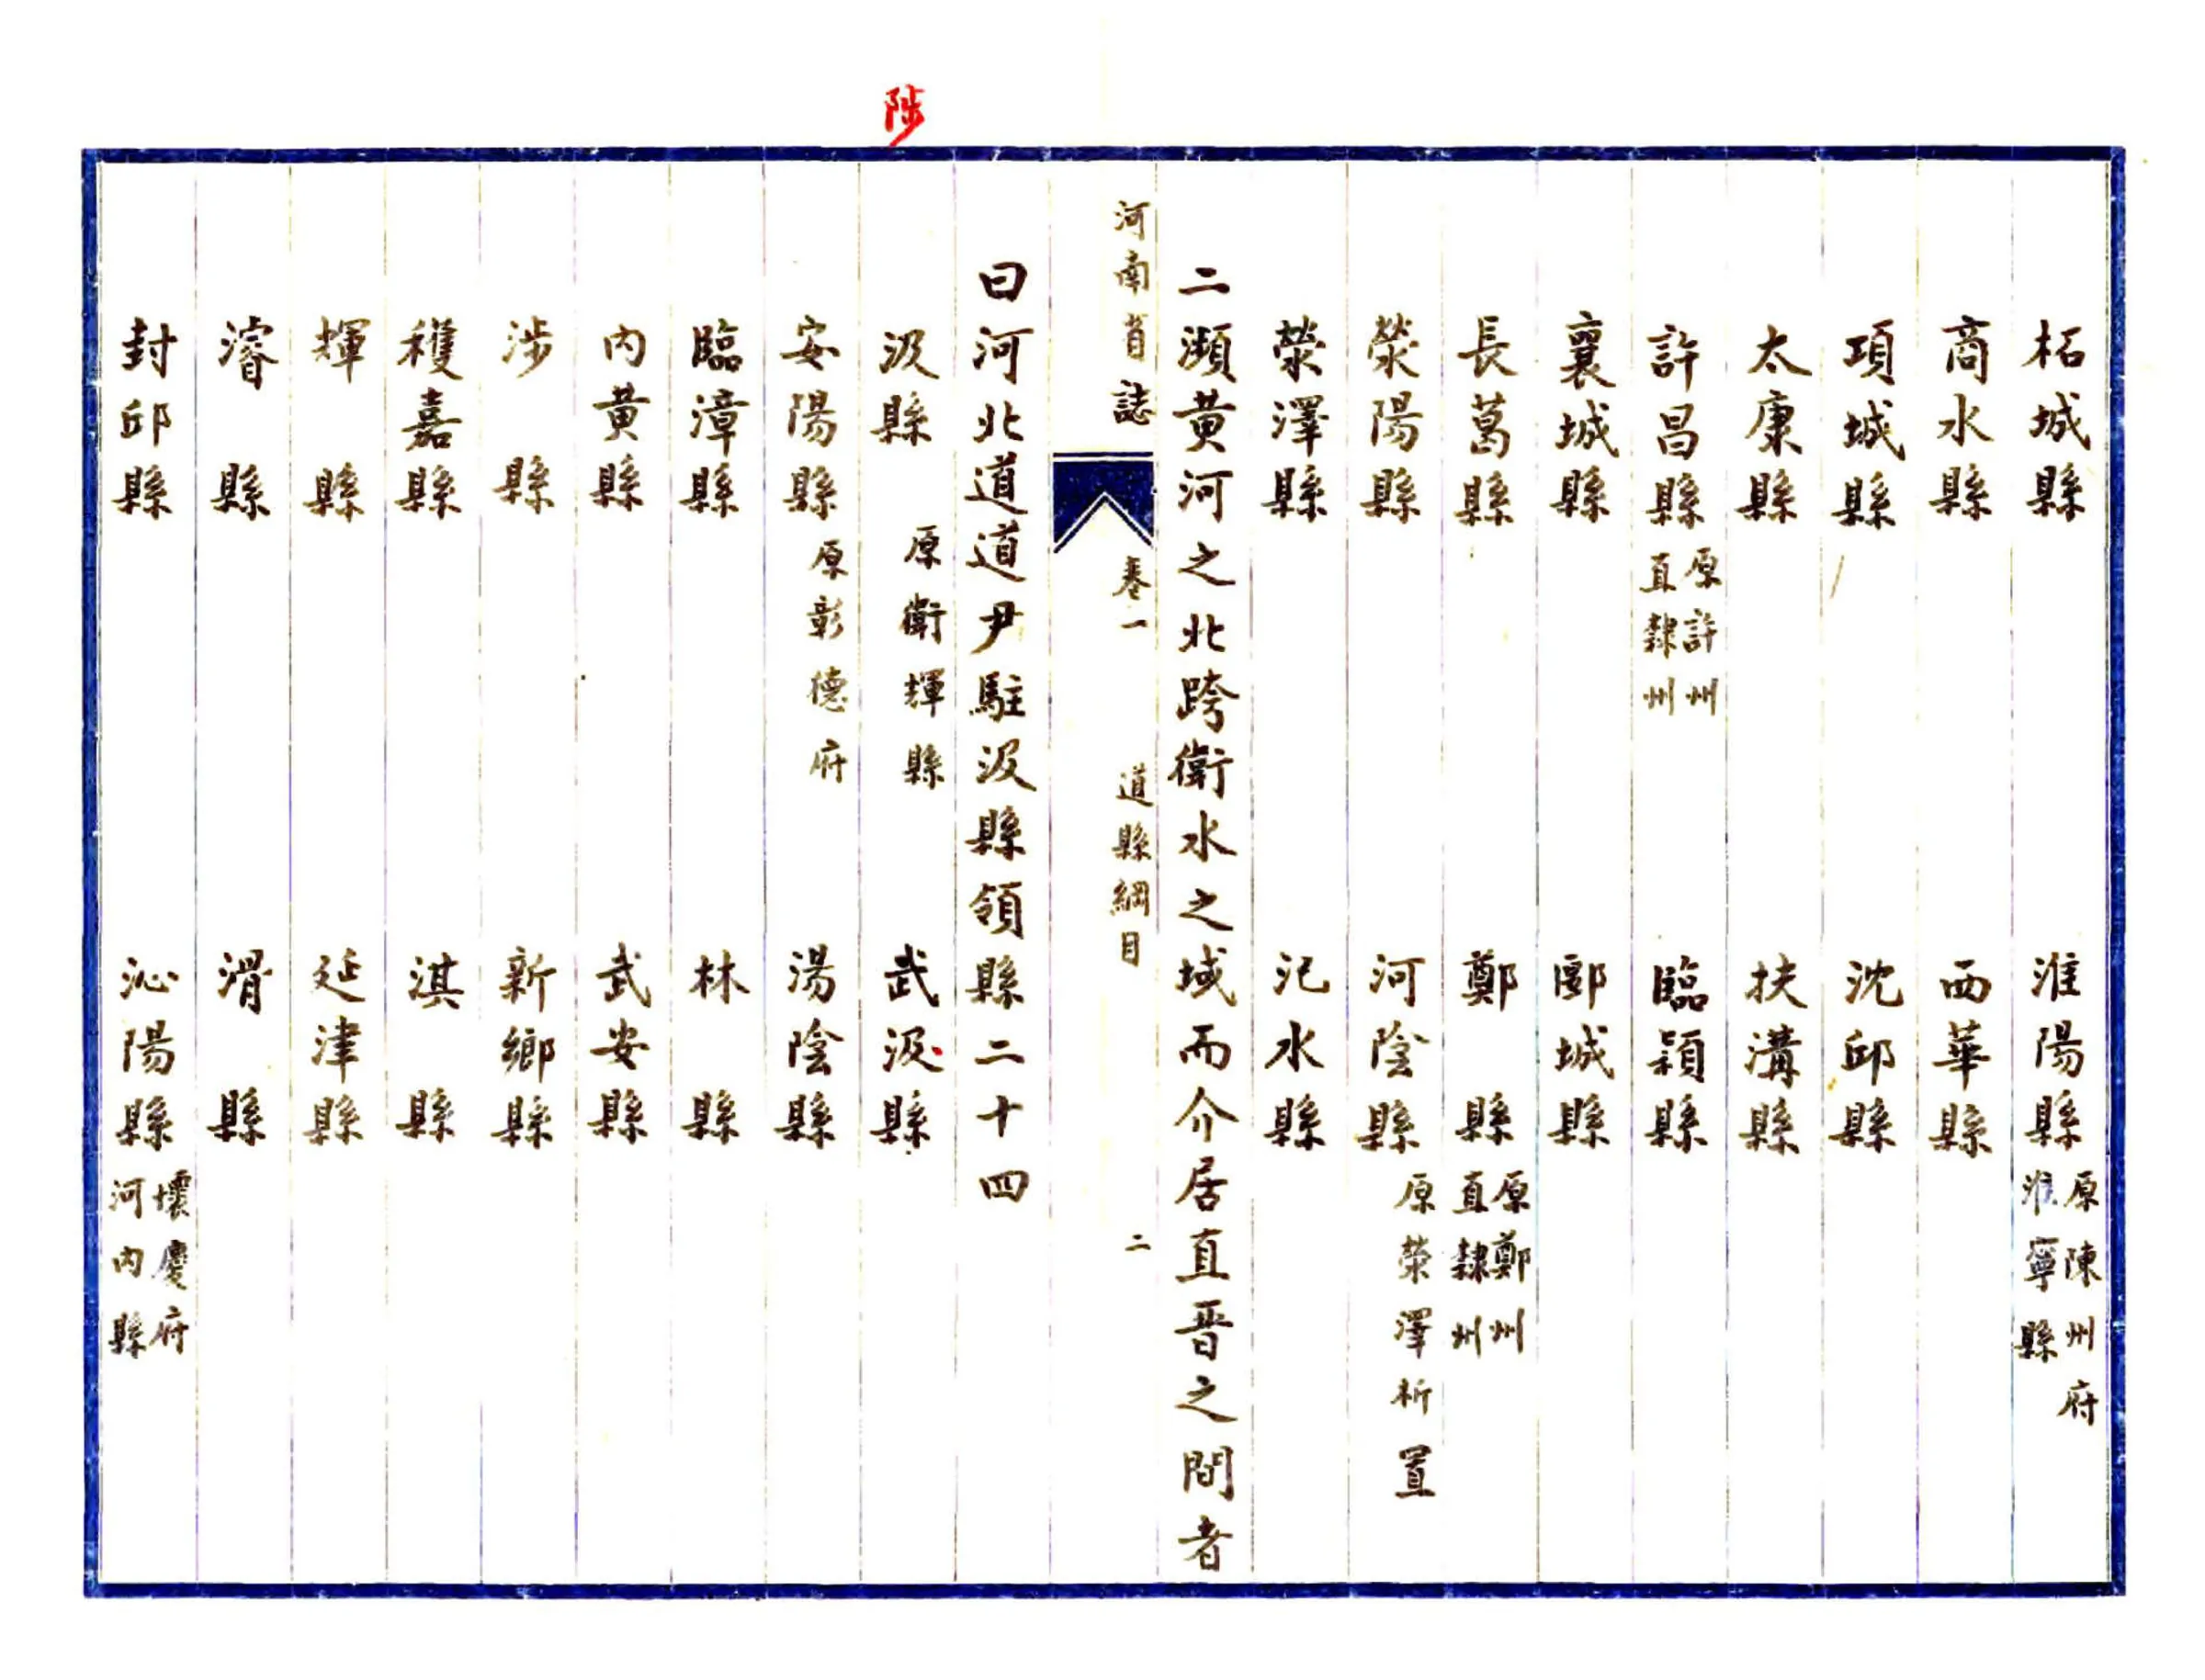 柘城縣 淮陽縣 原陳州府淮寧縣
商水縣 西華縣
項城縣 沈邱縣
太康縣 扶溝縣
許昌縣 原許州直隸州 臨潁縣
襄城縣 郾城縣
長葛縣 鄭縣 原鄭州直隸州
滎陽縣 河陰縣 原滎澤析置
滎澤縣 汜水縣
二瀕黃河之北跨衛水之域而介居直晉之間者
河南省誌 卷一 道縣綱目 二
曰河北道道尹駐汲縣領縣二十四
陟
汲縣 原衛輝縣 武汲縣
安陽縣 原彰德府 湯陰縣
臨漳縣 林縣
內黃縣 武安縣
涉縣 新鄉縣
穫嘉縣 淇縣
輝縣 延津縣
濬縣 滑縣
封邱縣 沁陽縣 壞慶府河內縣